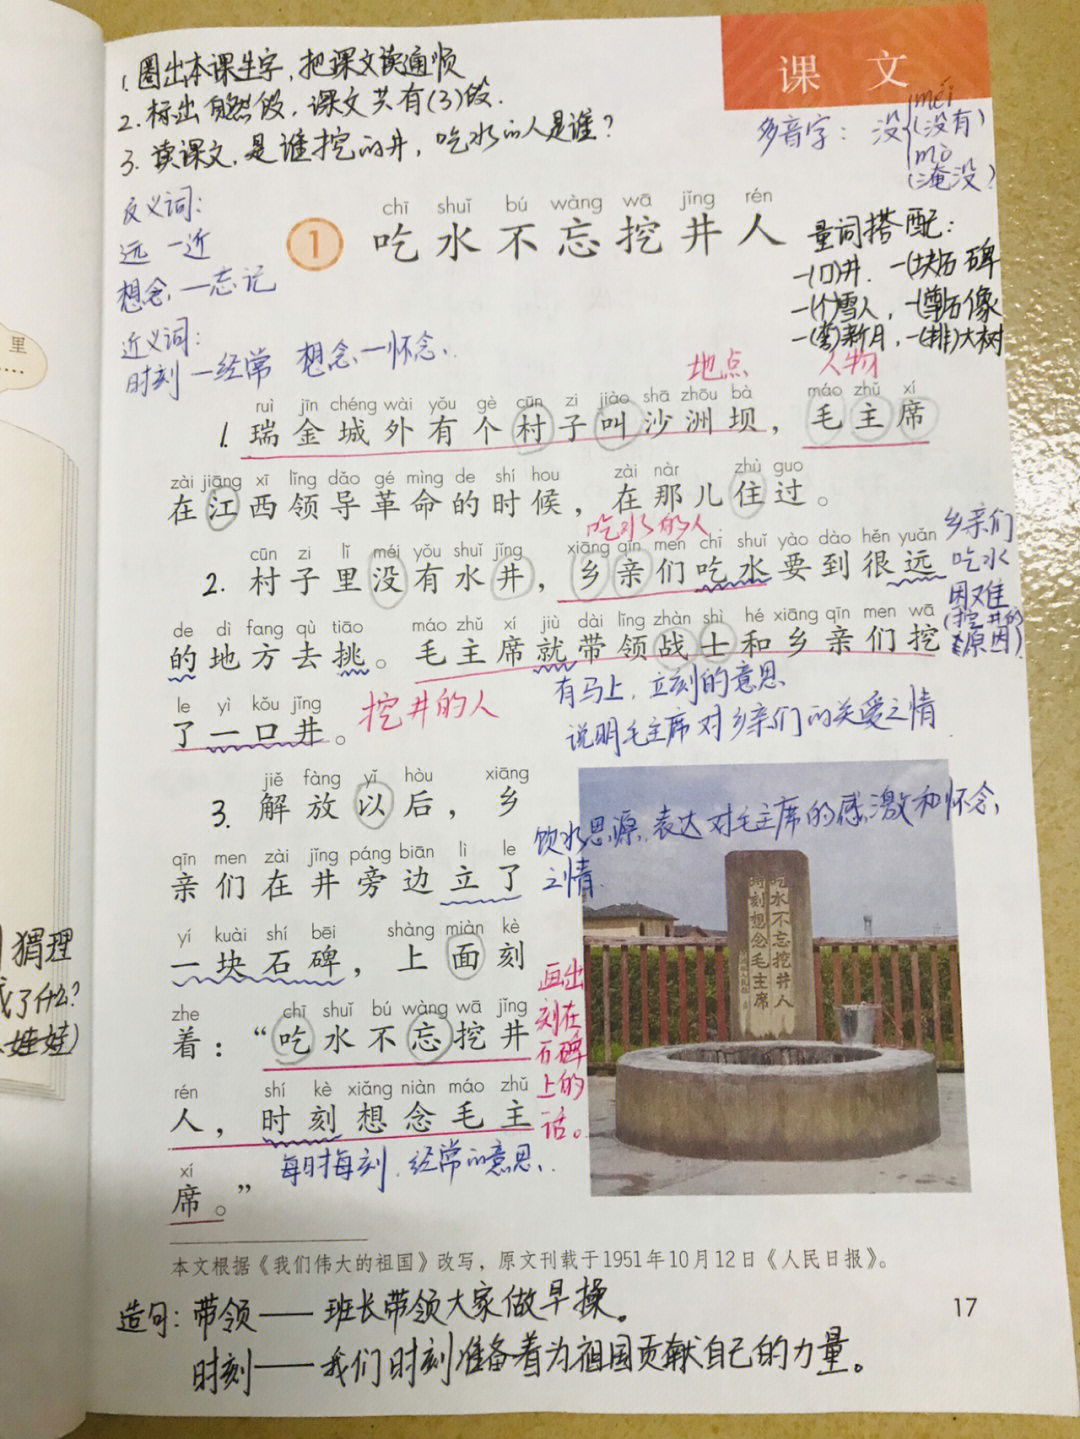 课 文
1.圈出本课生字,把课文读通顺
2.标出自然段,课文共有(3)段.
3.读课文,是谁挖的井,吃水的人是谁?
多音字: 没
méi
(没有)
mò
(淹没)
反义词:
远—近
想念—忘记
近义词:
时刻—经常 想念—怀念
chī shuǐ bú wàng wā jǐng rén
1 吃水不忘挖井人
量词搭配:
一(口)井. 一(块)石碑
一(个)雪人, 一(尊)石像
一(弯)新月, 一(排)大树
里
……
地点 人物
ruì jīn chéng wài yǒu gè cūn zi jiào shā zhōu bà máo zhǔ xí
1. 瑞金城外有个村子叫沙洲坝,毛主席
zài jiāng xī lǐng dǎo gé mìng de shí hou zài nàr zhù guo
在江西领导革命的时候,在那儿住过。
吃水的人
cūn zi lǐ méi yǒu shuǐ jǐng xiāng qīn men chī shuǐ yào dào hěn yuǎn
2. 村子里没有水井,乡亲们吃水要到很远
乡亲们
吃水
困难
(挖井的
原因)
de dì fang qù tiāo máo zhǔ xí jiù dài lǐng zhàn shì hé xiāng qīn men wā
的地方去挑。毛主席就带领战士和乡亲们挖
有马上,立刻的意思
le yì kǒu jǐng
了一口井。
挖井的人
说明毛主席对乡亲们的关爱之情
jiě fàng yǐ hòu xiāng
3. 解放以后,乡
饮水思源,表达对毛主席的感激和怀念
之情.
qīn men zài jǐng páng biān lì le
亲们在井旁边立了
yí kuài shí bēi shàng miàn kè
一块石碑,上面刻
zhe chī shuǐ bú wàng wā jǐng
着:“吃水不忘挖井
rén shí kè xiǎng niàn máo zhǔ
人,时刻想念毛主
xí
席。”
画出
刻在
石碑
上的
话。
每时每刻,经常的意思.
吃水不忘挖井人
時刻想念毛主席
猬理
了什么?
娃娃)
本文根据《我们伟大的祖国》改写,原文刊载于1951年10月12日《人民日报》。
17
造句:带领——班长带领大家做早操。
时刻——我们时刻准备着为祖国贡献自己的力量。